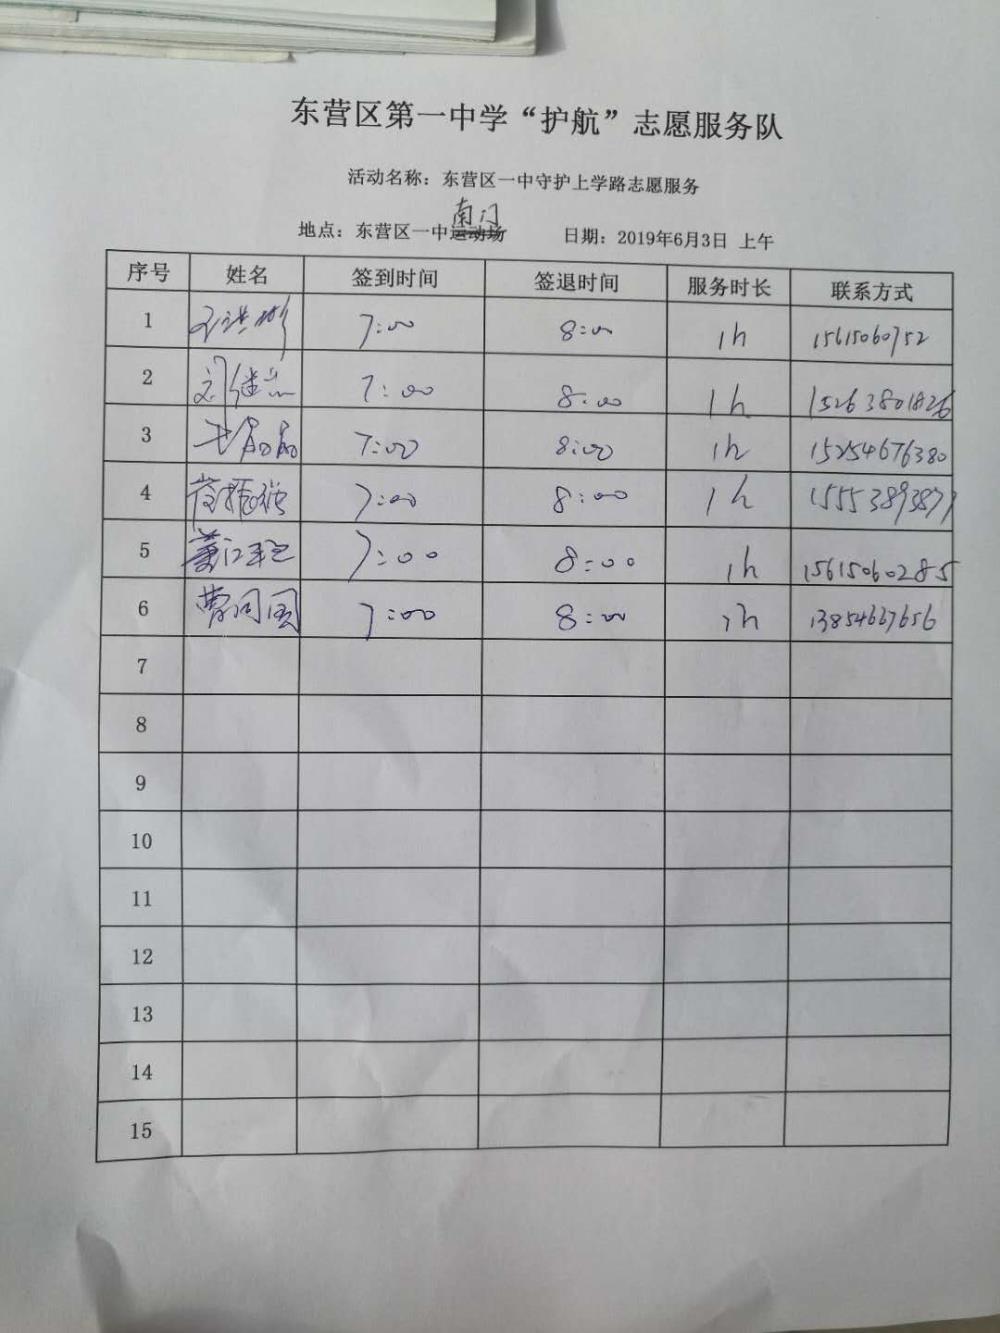 东营区第一中学“护航”志愿服务队
活动名称：东营区一中守护上学路志愿服务
南门
地点：东营区一中运动场 日期：2019年6月3日 上午
序号 姓名 签到时间 签退时间 服务时长 联系方式
1 7:00 8:00 1h 15615060752
2 7:00 8:00 1h 15263801826
3 7:00 8:00 1h 15254676380
4 7:00 8:00 1h 15553893879
5 7:00 8:00 1h 15615060285
6 曹同国 7:00 8:00 1h 13854667656
7
8
9
10
11
12
13
14
15